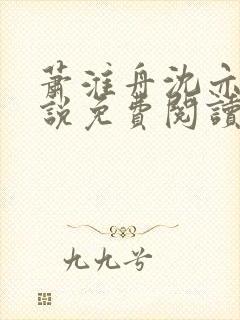 蕭淮舟沈亦
說免費閱讀
九九兮